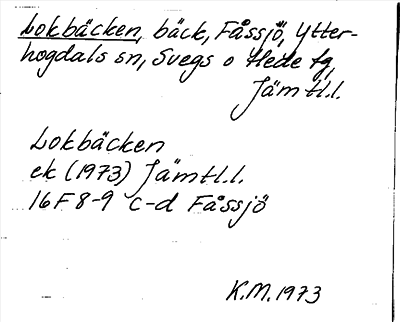 Lokbäcken, bäck, Fåssjö, Ytter-
hogdals sn, Svegs o Hede tg,
Jämtl.l.
Lokbäcken
ek (1973) Jämtl.l.
16F 8-9 c-d Fåssjö
K.M. 1973